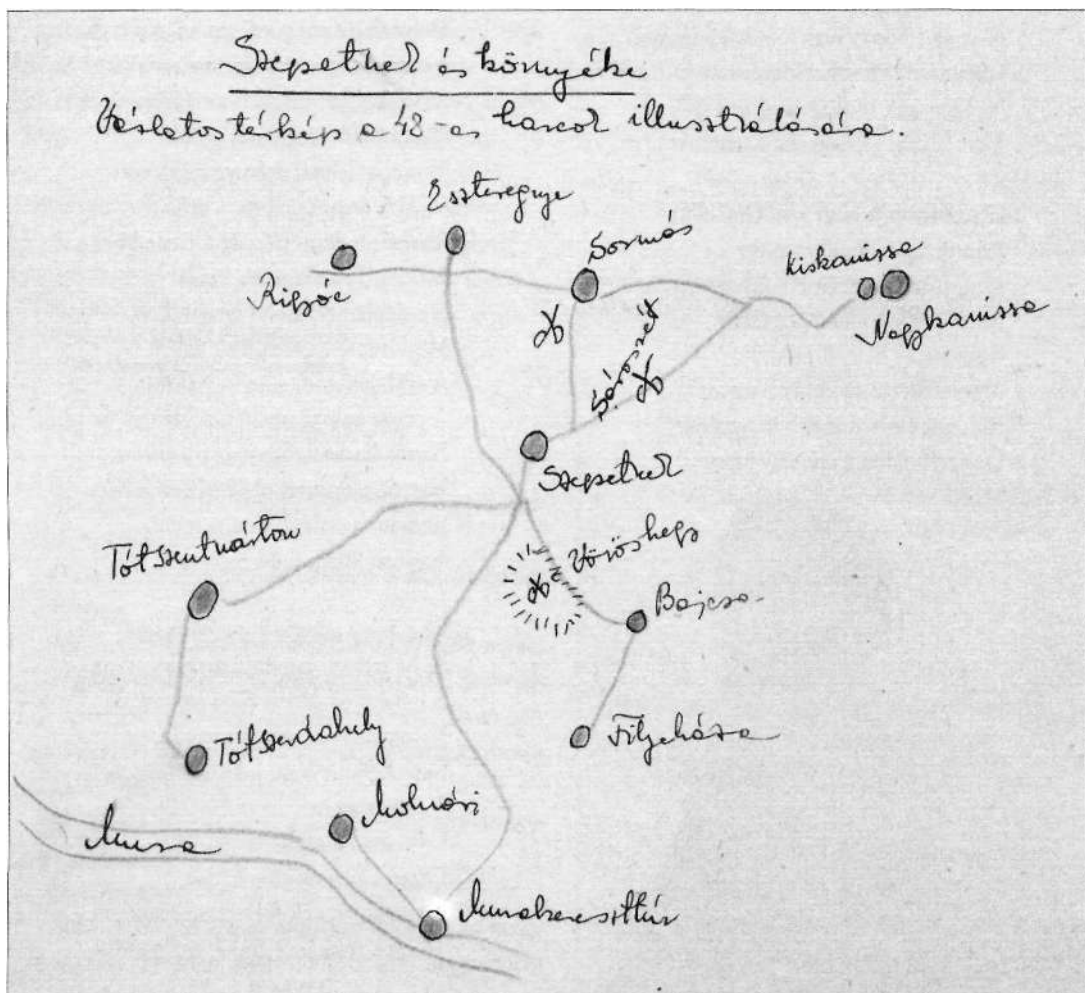 Szepetnek és környéke
Vázlatos térkép a 48-as harcok illusztrálására.
Eszteregnye
Sormás
Kiskanissa
Rigyác
Nagykanissa
Sárosrét
Szepetnek
Tótszentmárton
Vöröshegy
Bajcsa
Tótszerdahely
Fityeháza
Molnári
Mura
Murakeresztúr